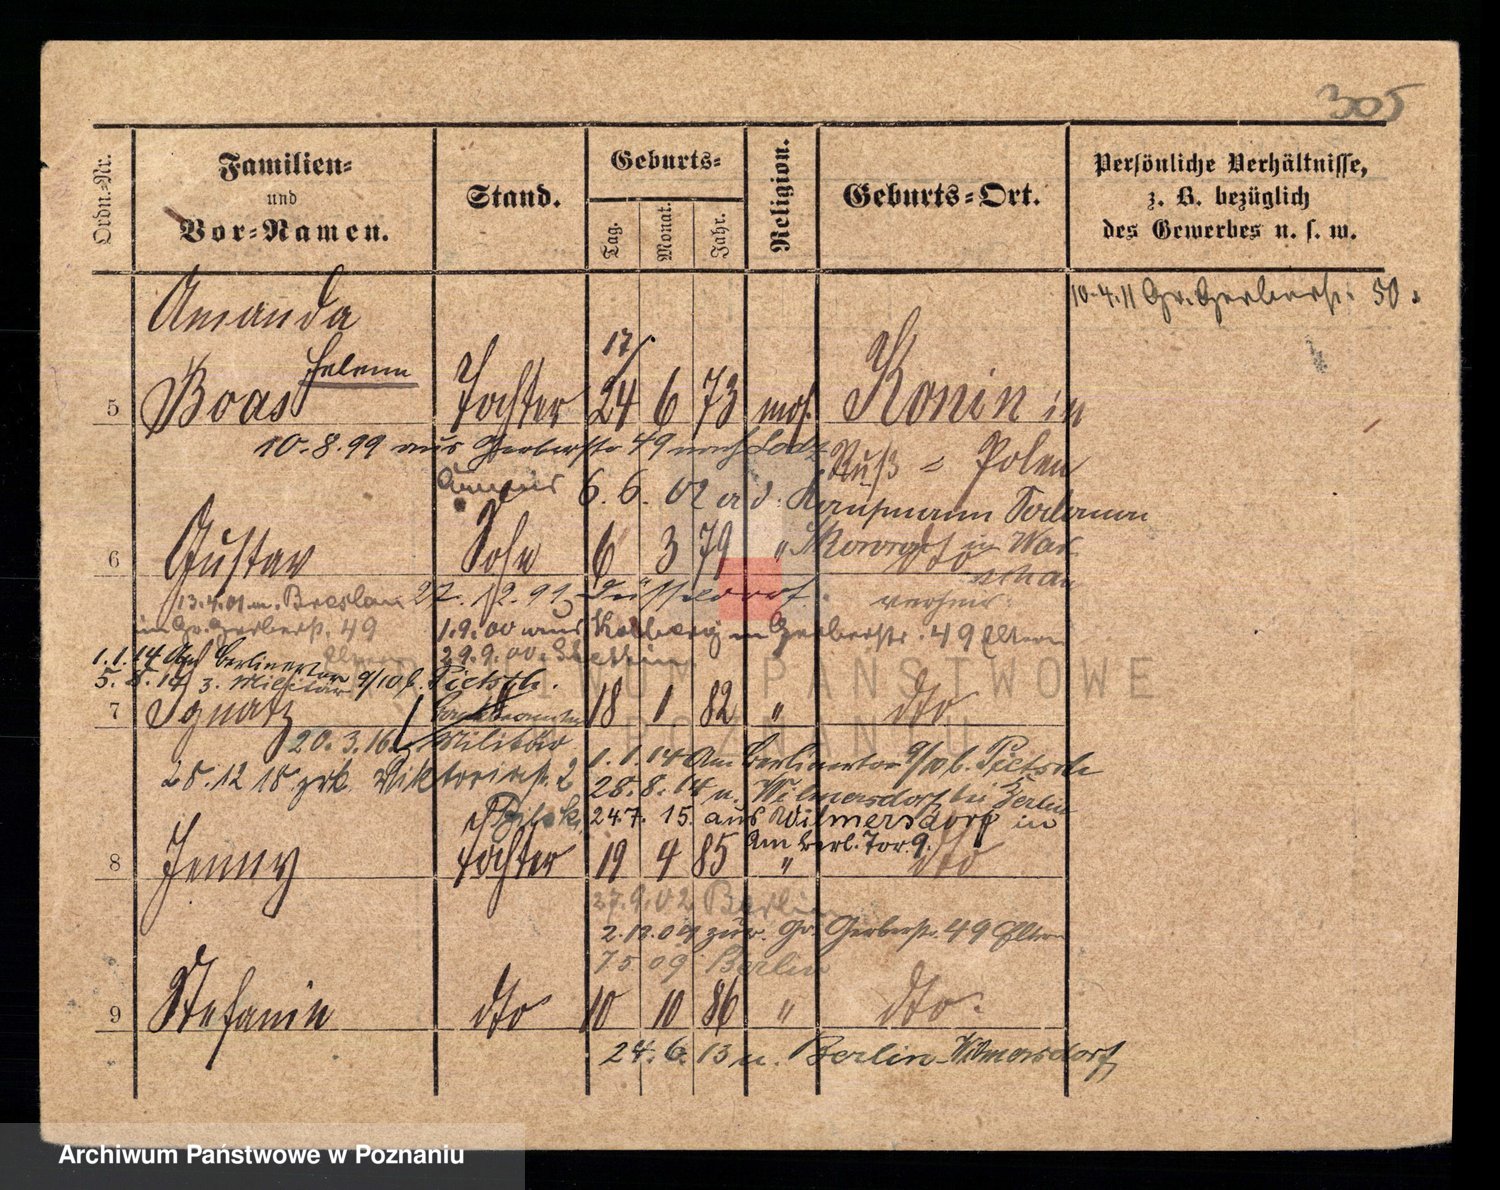 305
Ordn.-Nr.
Familien-
und
Vor-Namen.
Stand.
Geburts-
Tag. Monat. Jahr.
Religion.
Geburts-Ort.
Persönliche Verhältnisse,
z. B. bezüglich
des Gewerbes u. s. w.
10.4.11 Gr. Gerberstr. 50.
Amanda
Helene
17/
5 Boas Tochter 24 6 73 mos. Konin in
10.8.99 aus Gerberstr 49 nach Lodz
Ruß = Polen
6.6.02 a d. Kaufmann Salomon
6 Gustav Sohn 6 3 79 " dto
in War
schau
verheir.
13.4.01 n. Breslau 27.12.99 Düsseldorf.
in Gr. Gerberstr. 49 1.9.00 aus Kolberg n Gerberstr. 49 Eltern
Eltern 29.9.00. Stettin
1.1.14 Am Berlinertor 9/10 b. Pietsch.
5.8.14 z. Militär
7 Ignatz 18 1 82 " dto
20.3.16 z Militär
1.1.14 Am Berlinertor 9/10 b. Pietsch
28.12.18 zrk. Viktoriastr. 2
28.8.14 n. Wilmersdorf bei Berlin
24.7.15. aus Wilmersdorf in
Am Berl. Tor. 9.
8 Jenny Tochter 19 4 85 " dto
27.9.02 Berlin
2.12.04 zur. Gr. Gerberstr. 49 Eltern
7 5 09 Berlin
9 Stefanie dto 10 10 86 " dto.
24.6.13 n. Berlin-Wilmersdorf
ARCHIWUM PAŃSTWOWE
W POZNANIU
Archiwum Państwowe w Poznaniu